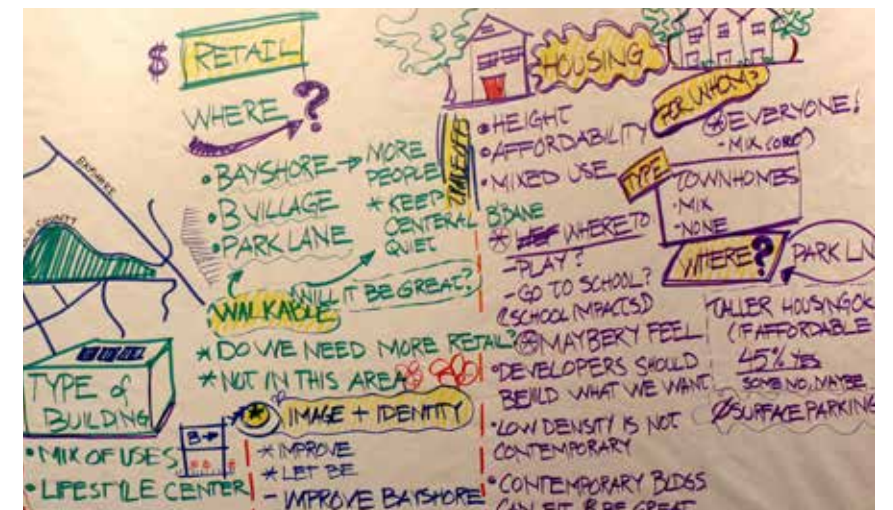 $ RETAIL
WHERE ?
• BAYSHORE → MORE PEOPLE
• B VILLAGE
• PARK LANE
* KEEP
CENTERAL
QUIET
WALKABLE
WILL IT BE GREAT?
* DO WE NEED MORE RETAIL?
* NOT IN THIS AREA
BAYSHORE
COUNTY
TYPE of
BUILDING
• MIX OF USES
• LIFESTYLE CENTER
B→
* IMAGE + IDENTITY
* IMPROVE
* LET BE
- IMPROVE BAYSHORE
HOUSING
TRADEOFFS
• HEIGHT
• AFFORDABILITY
• MIXED USE
B'BANE
WHERE TO
- PLAY?
- GO TO SCHOOL?
(SCHOOL IMPACTS)
MAYBERY FEEL
• DEVELOPERS SHOULD
BEUILD WHAT WE WANT
• LOW DENSITY IS NOT
CONTEMPORARY
• CONTEMPORARY BLDGS
CAN FIT & BE GREAT
FOR WHOM?
EVERYONE!
- MIX
TYPE
TOWNHOMES
• MIX
- NONE
WHERE?
PARK LN
TALLER HOUSING OK
(IF AFFORDABLE
45% YES
SOME NO, MAYBE
Ø SURFACE PARKING